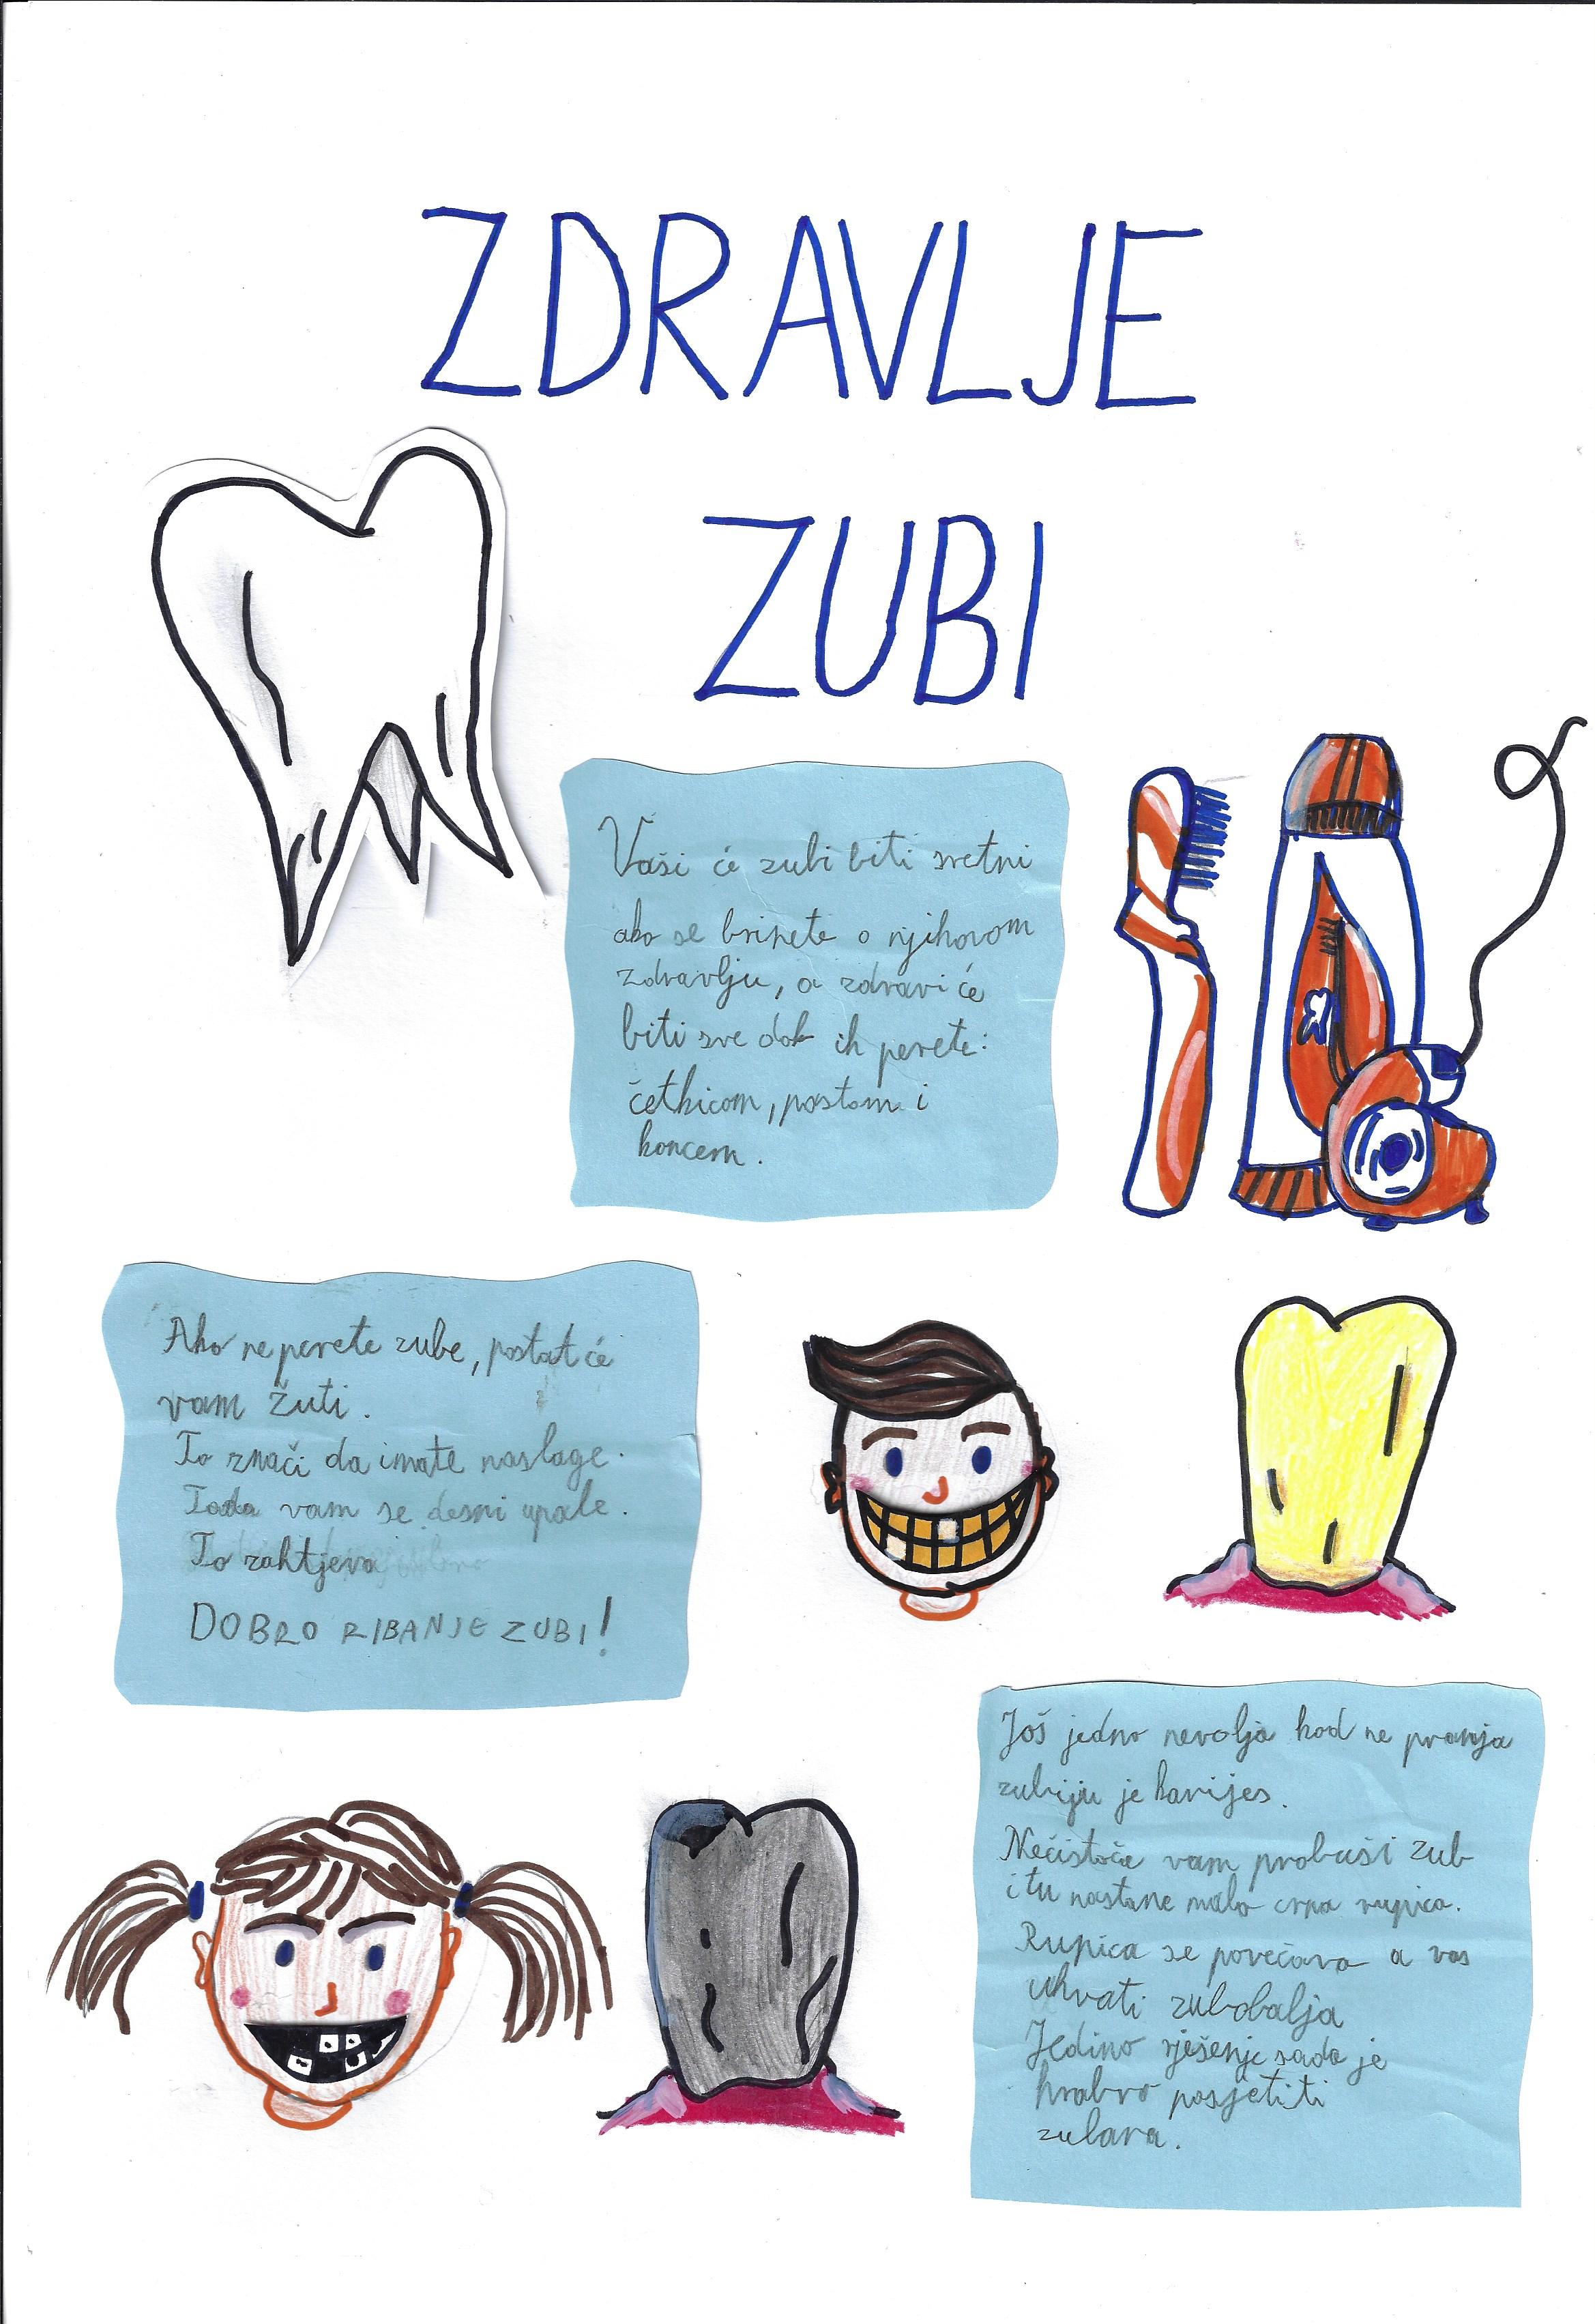 ZDRAVLJE
ZUBI
Vaši će zubi biti sretni
ako se brinete o njihovom
zdravlju, a zdravi će
biti sve dok ih perete:
četkicom, pastom i
koncem.
Ako ne perete zube, postat će
vam žuti.
To znači da imate naslage.
Tada vam se desni upale.
To zahtjeva
DOBRO RIBANJE ZUBI!
Još jedna nevolja kod ne pranja
zubiju je karijes.
Nečistoće vam probuši zub
i tu nastane mala crna rupica.
Rupica se povećava a vas
uhvati zubobolja
Jedino rješenje sada je
hrabro posjetiti
zubara.